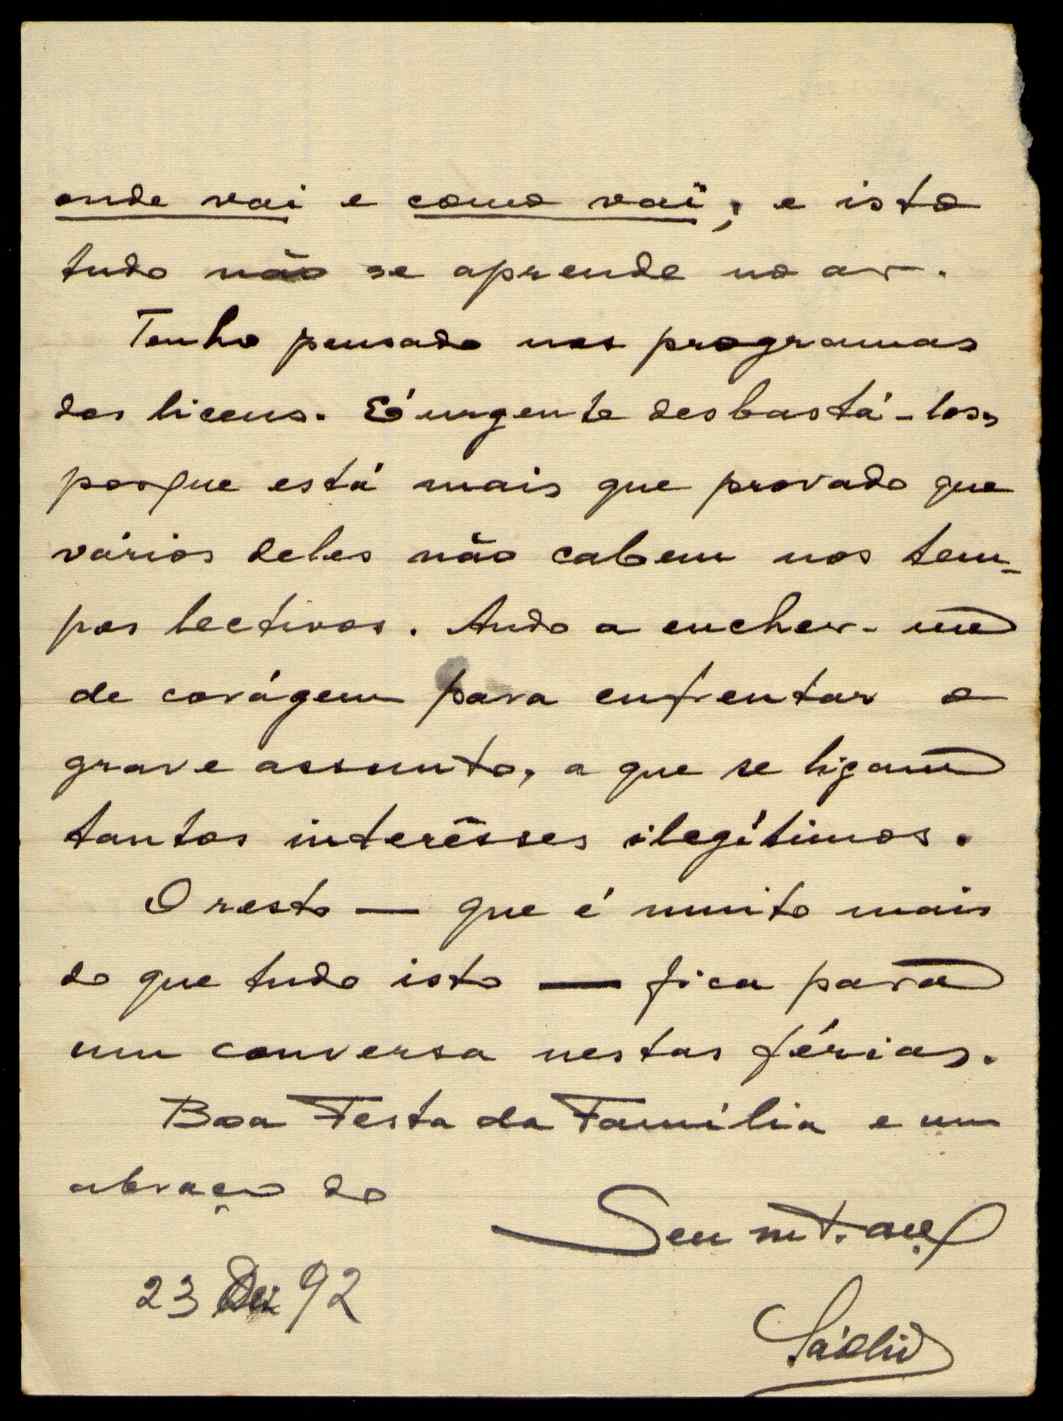 onde vai e como vai; e isto
tudo não se aprende no ar.
Tenho pensado nos programas
dos liceus. É urgente desbastá-los,
porque está mais que provado que
vários deles não cabem nos tem-
pos lectivos. Ando a encher-me
de corágem para enfrentar o
grave assunto, a que se ligam
tantos interêsses ilegítimos.
O resto — que é muito mais
do que tudo isto — fica para
um conversa nestas férias.
Boa Festa da Família e um
abraço do
Seu mt.
23 Dez 92